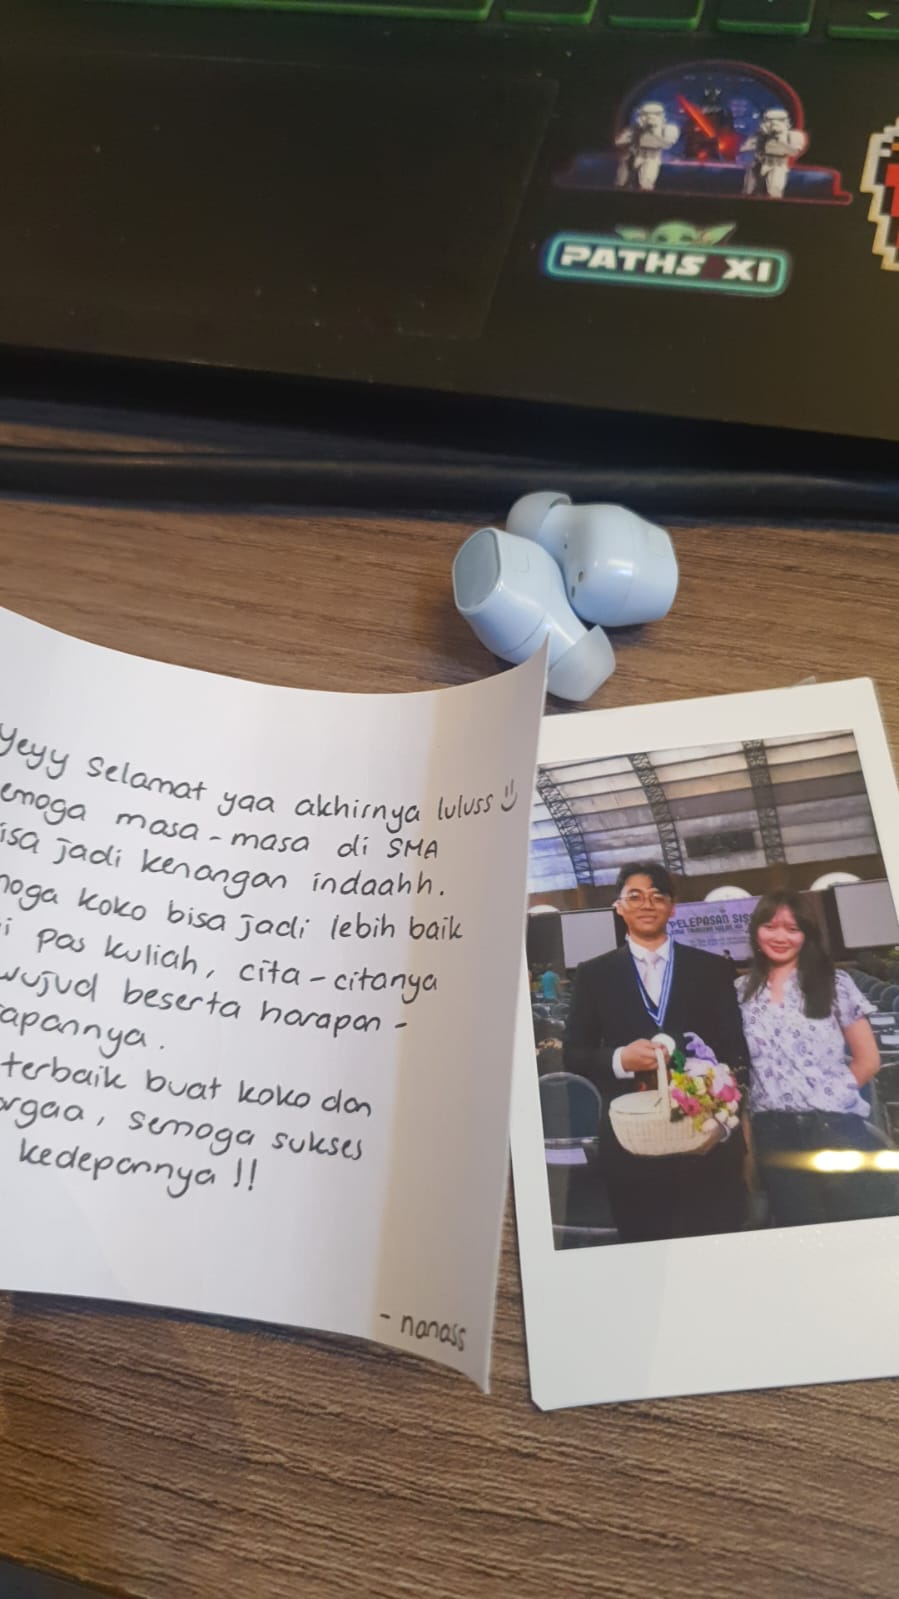 PATHS XI
Yeyy selamat yaa akhirnya luluss
emoga masa-masa di SMA
isa jadi kenangan indaahh.
moga koko bisa jadi lebih baik
i pas kuliah, cita-citanya
wujud beserta harapan-
rapannya.
terbaik buat koko dan
argaa, semoga sukses
kedepannya !!
- nanass
PELEPASAN SIS